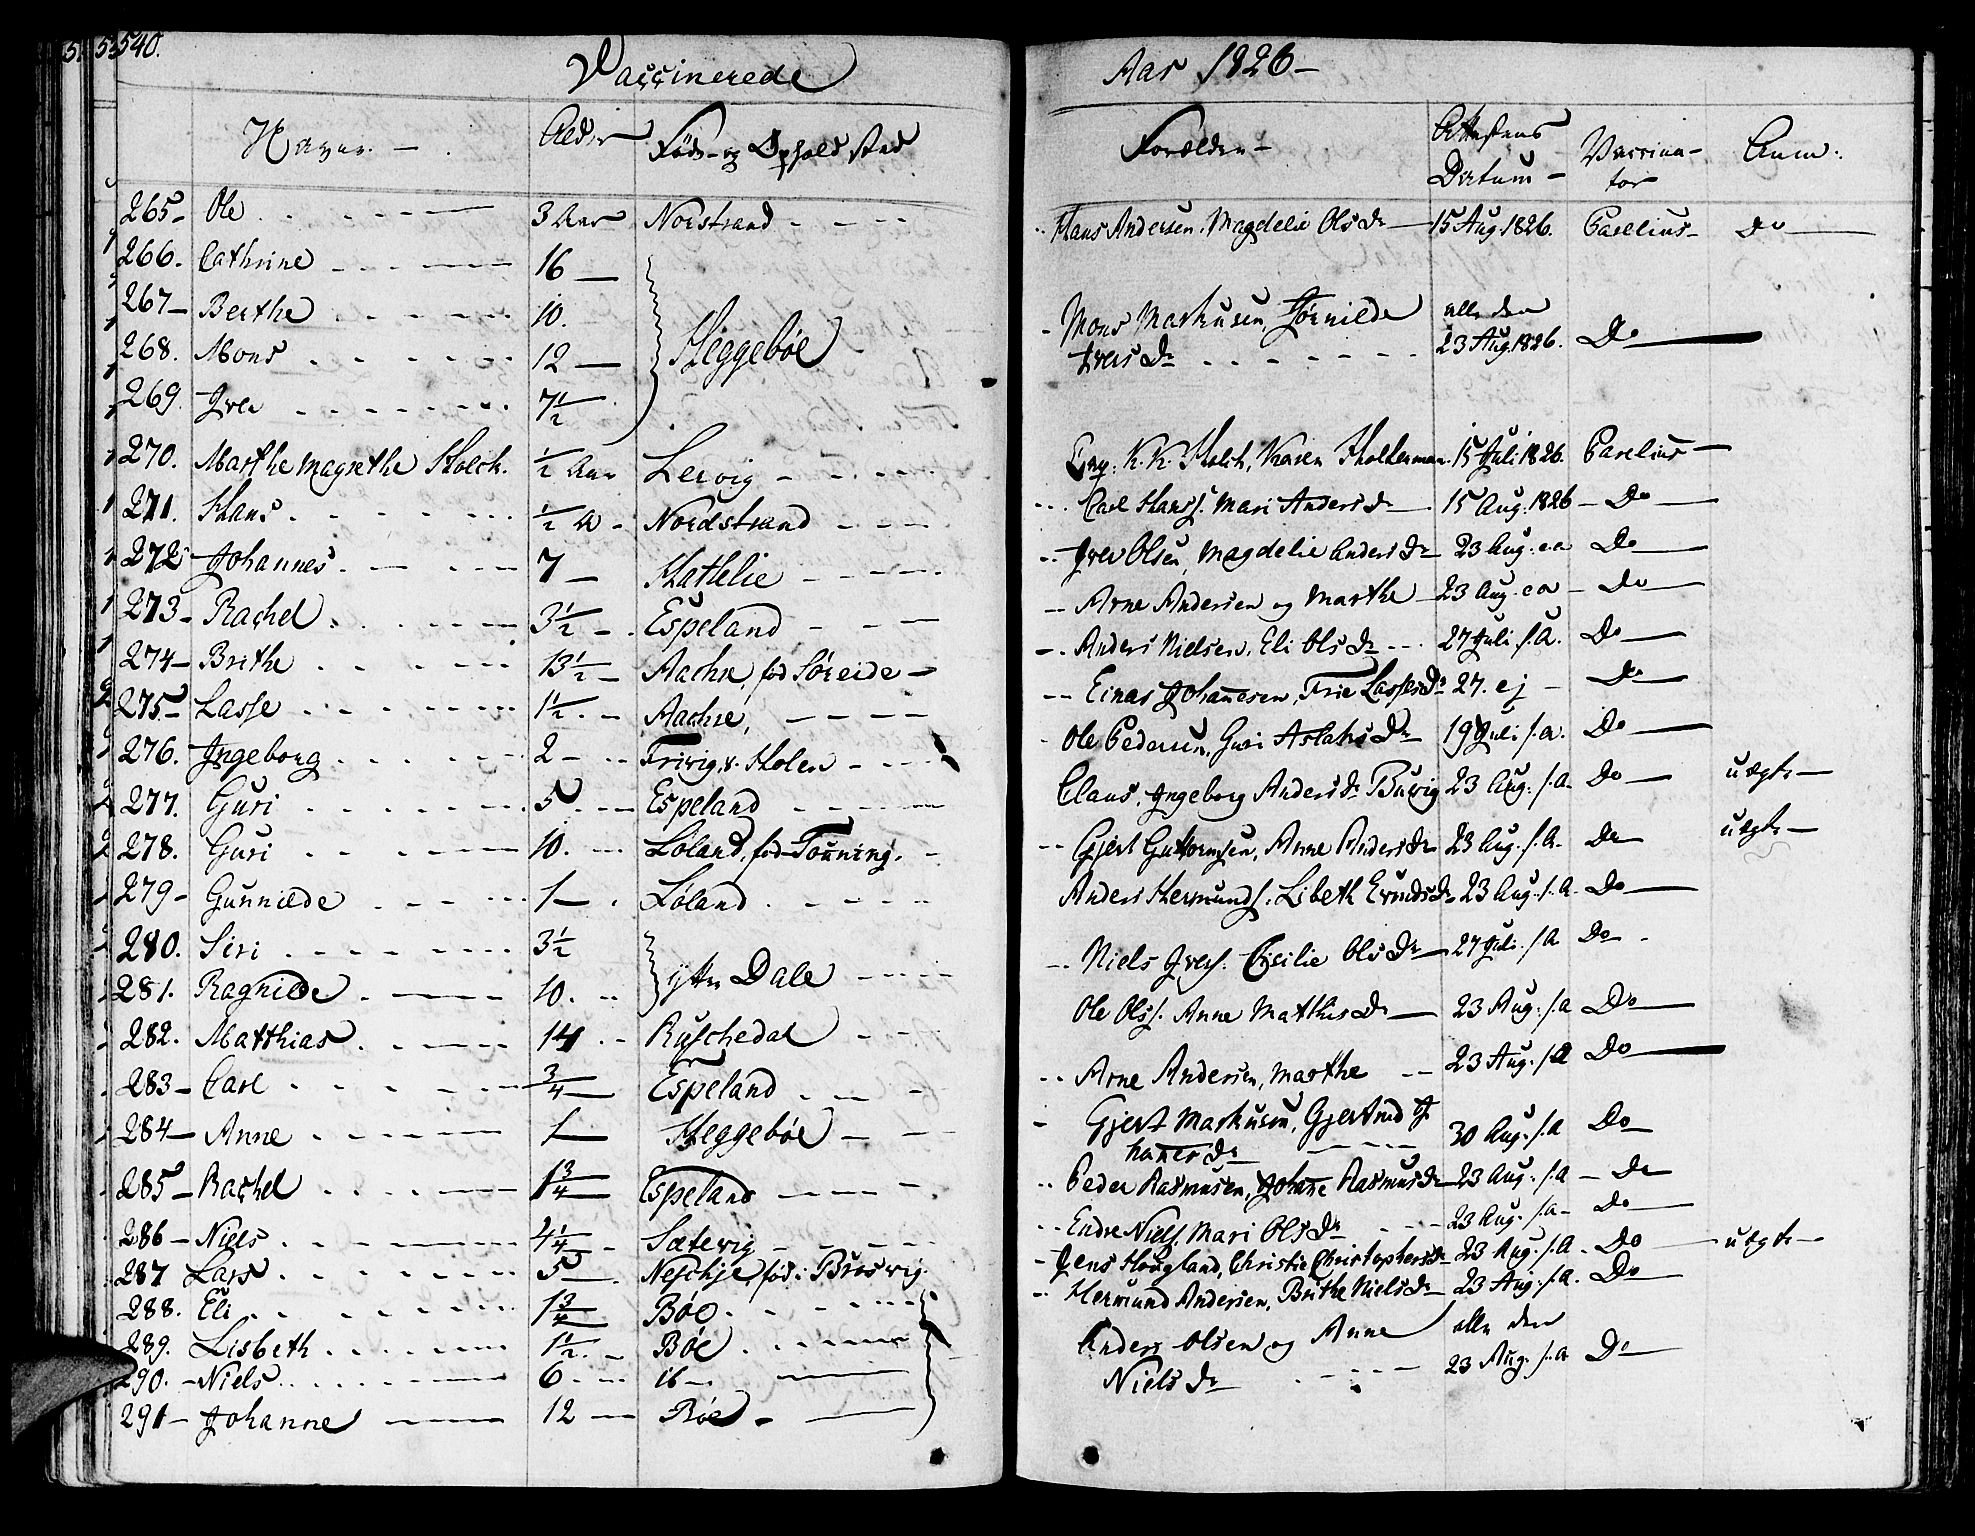 540.
Vaccinerede Aar 1826-
Navne. - Alder Føde- og Opholdssted Forældre - Attestens Datum - Vaccinator Anm:
265- Ole 3 Aar Norstrand Hans Andersen, Magdelie Olsdr 15 Aug 1826. Parelius- Do
266. Cathrine 16
267- Berthe 10. Heggebøe Mons Markusen, Jørnilde alle den
268. Mons 12 Ivers Dr 23 Aug. 1826. Do
269. Iver 7½
270. Marthe Magrethe Holck. ½ Aar Lervig K. K. Holck, Karen Holterman 15 Juli 1826. Parelius
271. Hans ½ A Nordstrand Carl Hanss. Mari Anders Dr 15 Aug. 1826 - Do
272 Johannes 7 Hatlelie Iver Olsen, Magdelie Anders Dr 23 Aug. ea Do
273- Rachel 3½ Espeland Arne Andersen og Marthe 23 Aug. ea - Do
274- Brithe 13½ Aachre, fød Søreide Anders Nielsen, Eli Ols Dr 27 Juli s.A. Do
275- Lasse 1½ Aachre, Einar Johannesen, Lasses Dr 27. ej - Do
276. Ingeborg 2 Holen Ole Pedersen, Guri Aslaks Dr 19 Juli s.a. Do
277. Guri 5 Espeland Claus, Ingeborg Anders Dr 23 Aug. s.a. Do uægte
278. Guri 10. Løland, fød Tønning. Gjert Guttormsen, Anne Anders Dr 23 Aug. s.A. Do uægte
279- Gunnilde 1 Løland Anders Hermunds. Lisbeth Dr 23 Aug. s.A. Do
280. Siri 3½ Niels Ivers. Cisilie Ols Dr 27 Juli s.A Do
281. Ragnilde 10. ytre Dale Ole Olss. Anne Matthis Dr 23 Aug. s.a Do
282. Matthias 14 Ruschedal Arne Andersen, Marthe 23 Aug. s.A Do
283- Carl ¾ Espeland
284- Anne 1 Heggebøe Gjert Markusen, Gjertrud Jo
hannes Dr 30 Aug. s.a Do
285- Rachel 1¾ Espeland Peder Rasmusen, Johanne Rasmus Dr 23 Aug. s.A - Do
286- Niels 4¼ Sætevig Endre Niels. Mari Ols Dr 23 Aug. s.a- Do
287 Lars 5 Neschje, fød i Brosvig. Jens Hougland, Christie Christophers Dr 23 Aug. s.A. Do uægte
288. Eli 1¾ Bøe. Hermund Andersen, Brithe Niels Dr 23 Aug. s.a. Do
289. Lisbeth 1½ Bøe Anders Olsen og Anne alle den
290. Niels 6 ib Niels Dr 23 Aug. s.a Do
291- Johanne 12 Bøe